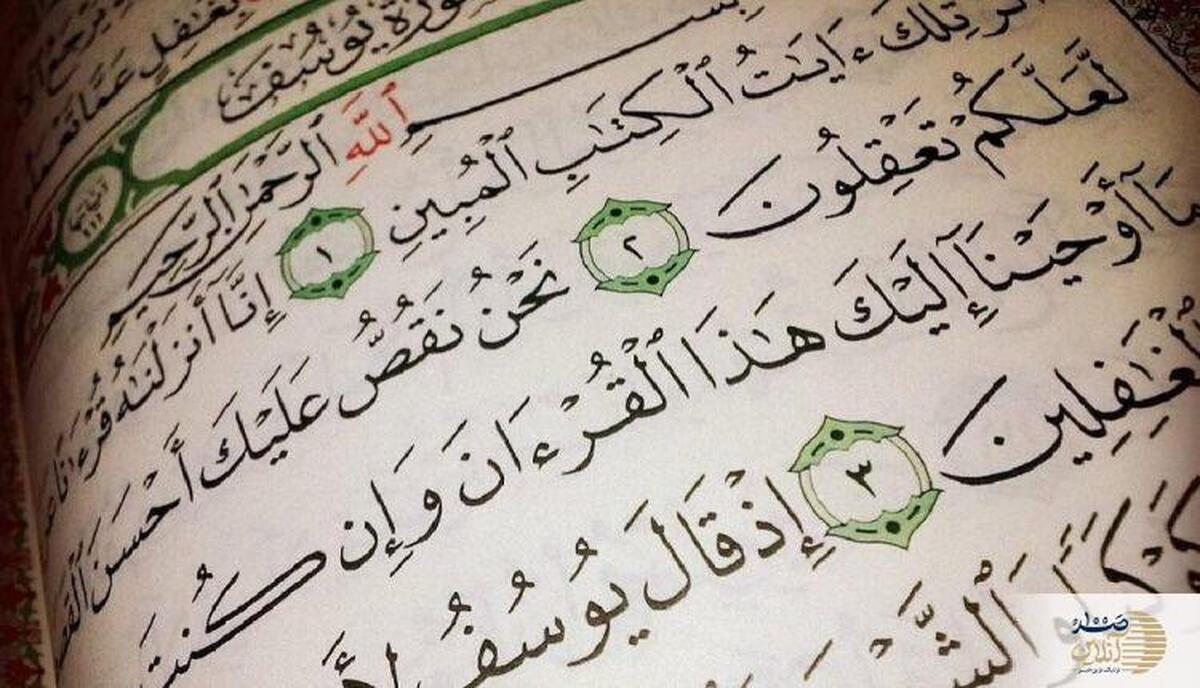 يَغْفِلٍ عَمَّا تَعْمَلُونَ
سُورَةُ يُوسُفَ
بِسْمِ ٱللَّهِ ٱلرَّحْمَٰنِ ٱلرَّحِيمِ
الٓر تِلْكَ ءَايَٰتُ ٱلْكِتَٰبِ ٱلْمُبِينِ ١ إِنَّآ أَنزَلْنَٰهُ قُرْءَٰنًا
لَّعَلَّكُمْ تَعْقِلُونَ ٢ نَحْنُ نَقُصُّ عَلَيْكَ أَحْسَنَ
مَآ أَوْحَيْنَآ إِلَيْكَ هَٰذَا ٱلْقُرْءَانَ وَإِن كُنتَ
ٱلْغَٰفِلِينَ ٣ إِذْ قَالَ يُوسُفُ
ٱلشَّمْسَ
صدر
آنلاین